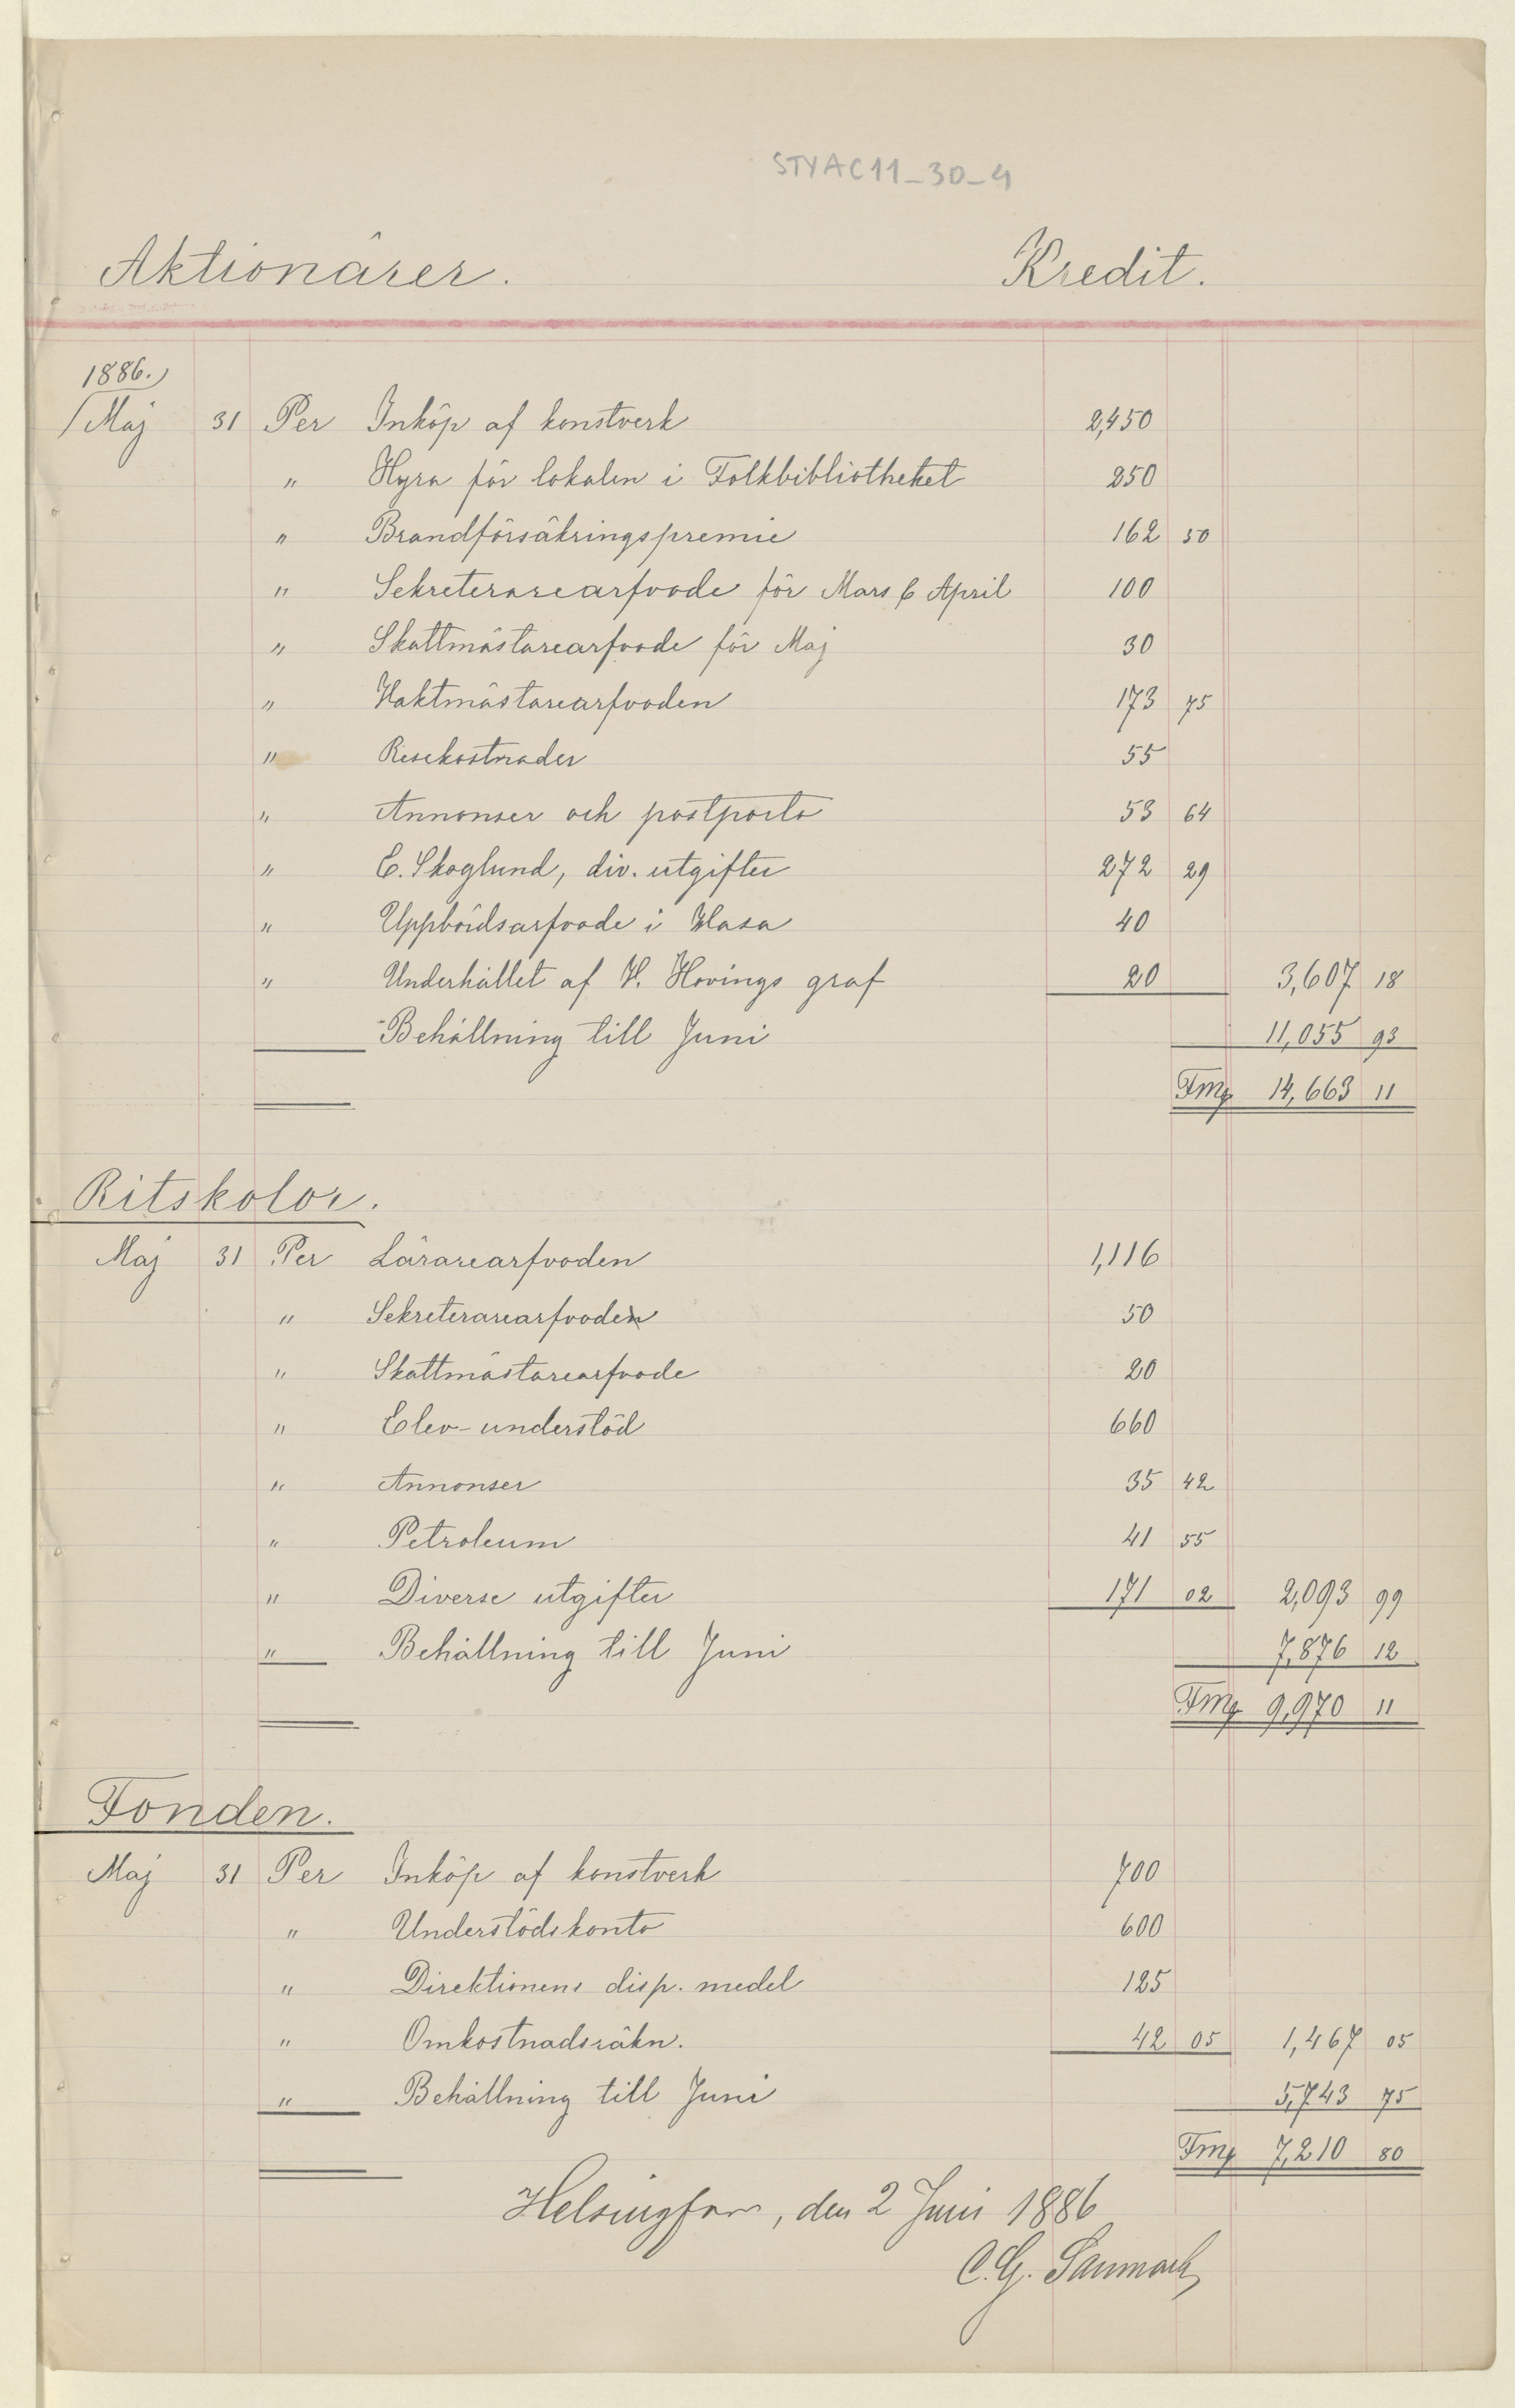 STYAC11_30_4
Aktionärer. Kredit.
1886.
Maj 31 Per Inköp af konstverk 2,450
" Hyra för lokalen i Folkbibliotheket 250
" Brandförsäkringspremie 162 50
" Sekreterarearfvode för Mars & April 100
" Skattmästarearfvode för Maj 30
" Vaktmästarearfvoden 173 75
" Resekostnader 55
" Annonser och postporto 53 64
" E. Skoglund, div. utgifter 272 29
" Uppbördsarfvode i Wasa 40
" Underhållet af V. Hovings graf 20 3,607 18
Behållning till Juni 11,055 93
Fmg 14,663 11
Ritskolor.
Maj 31 Per Lärarearfvoden 1,116
" Sekreterarearfvoden 50
" Skattmästarearfvode 20
" Elev-understöd 660
" Annonser 35 42
" Petroleum 41 55
" Diverse utgifter 171 02 2,093 99
" Behållning till Juni 7,876 12
Fmg 9,970 11
Fonden.
Maj 31 Per Inköp af konstverk 700
" Understödskonto 600
" Direktionens disp. medel 125
" Omkostnadsräkn. 42 05 1,467 05
" Behållning till Juni 5,743 75
Fmg 7,210 80
Helsingfors, den 2 Juni 1886
C. G. Sanmark